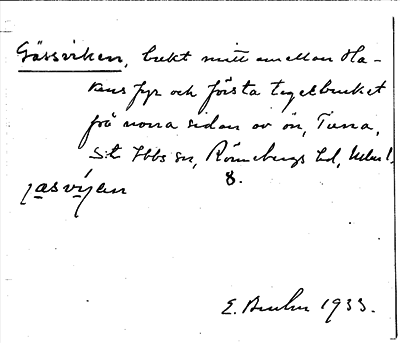 Gåssviken, bukt mitt emellan Ha-
kens fyr och första tegelbruket
på norra sidan av ön, Tuna,
St Ibbs sn, Rönnebergs hd, Malm.l.
8.
jasvijen
E. 1933.